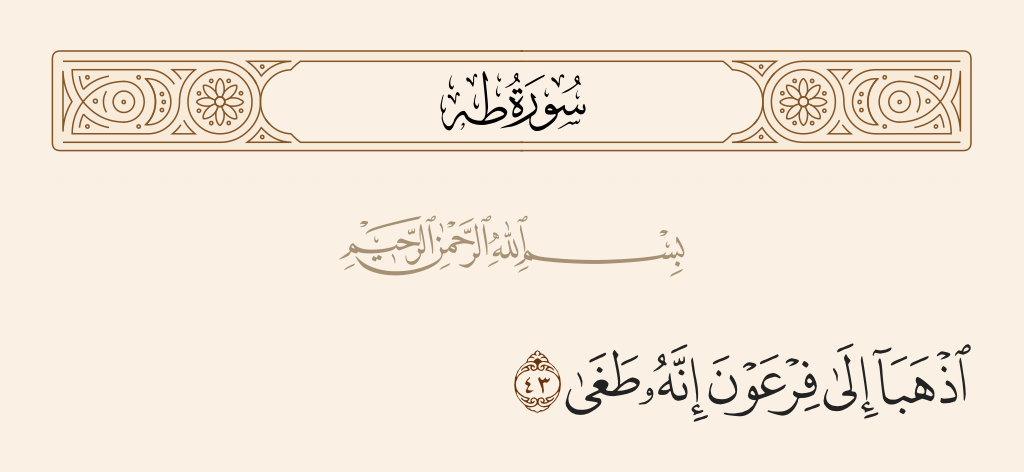 سُورَةُ طه
بِسْمِ ٱللَّهِ ٱلرَّحْمَٰنِ ٱلرَّحِيمِ
ٱذْهَبَآ إِلَىٰ فِرْعَوْنَ إِنَّهُۥ طَغَىٰ ٤٣